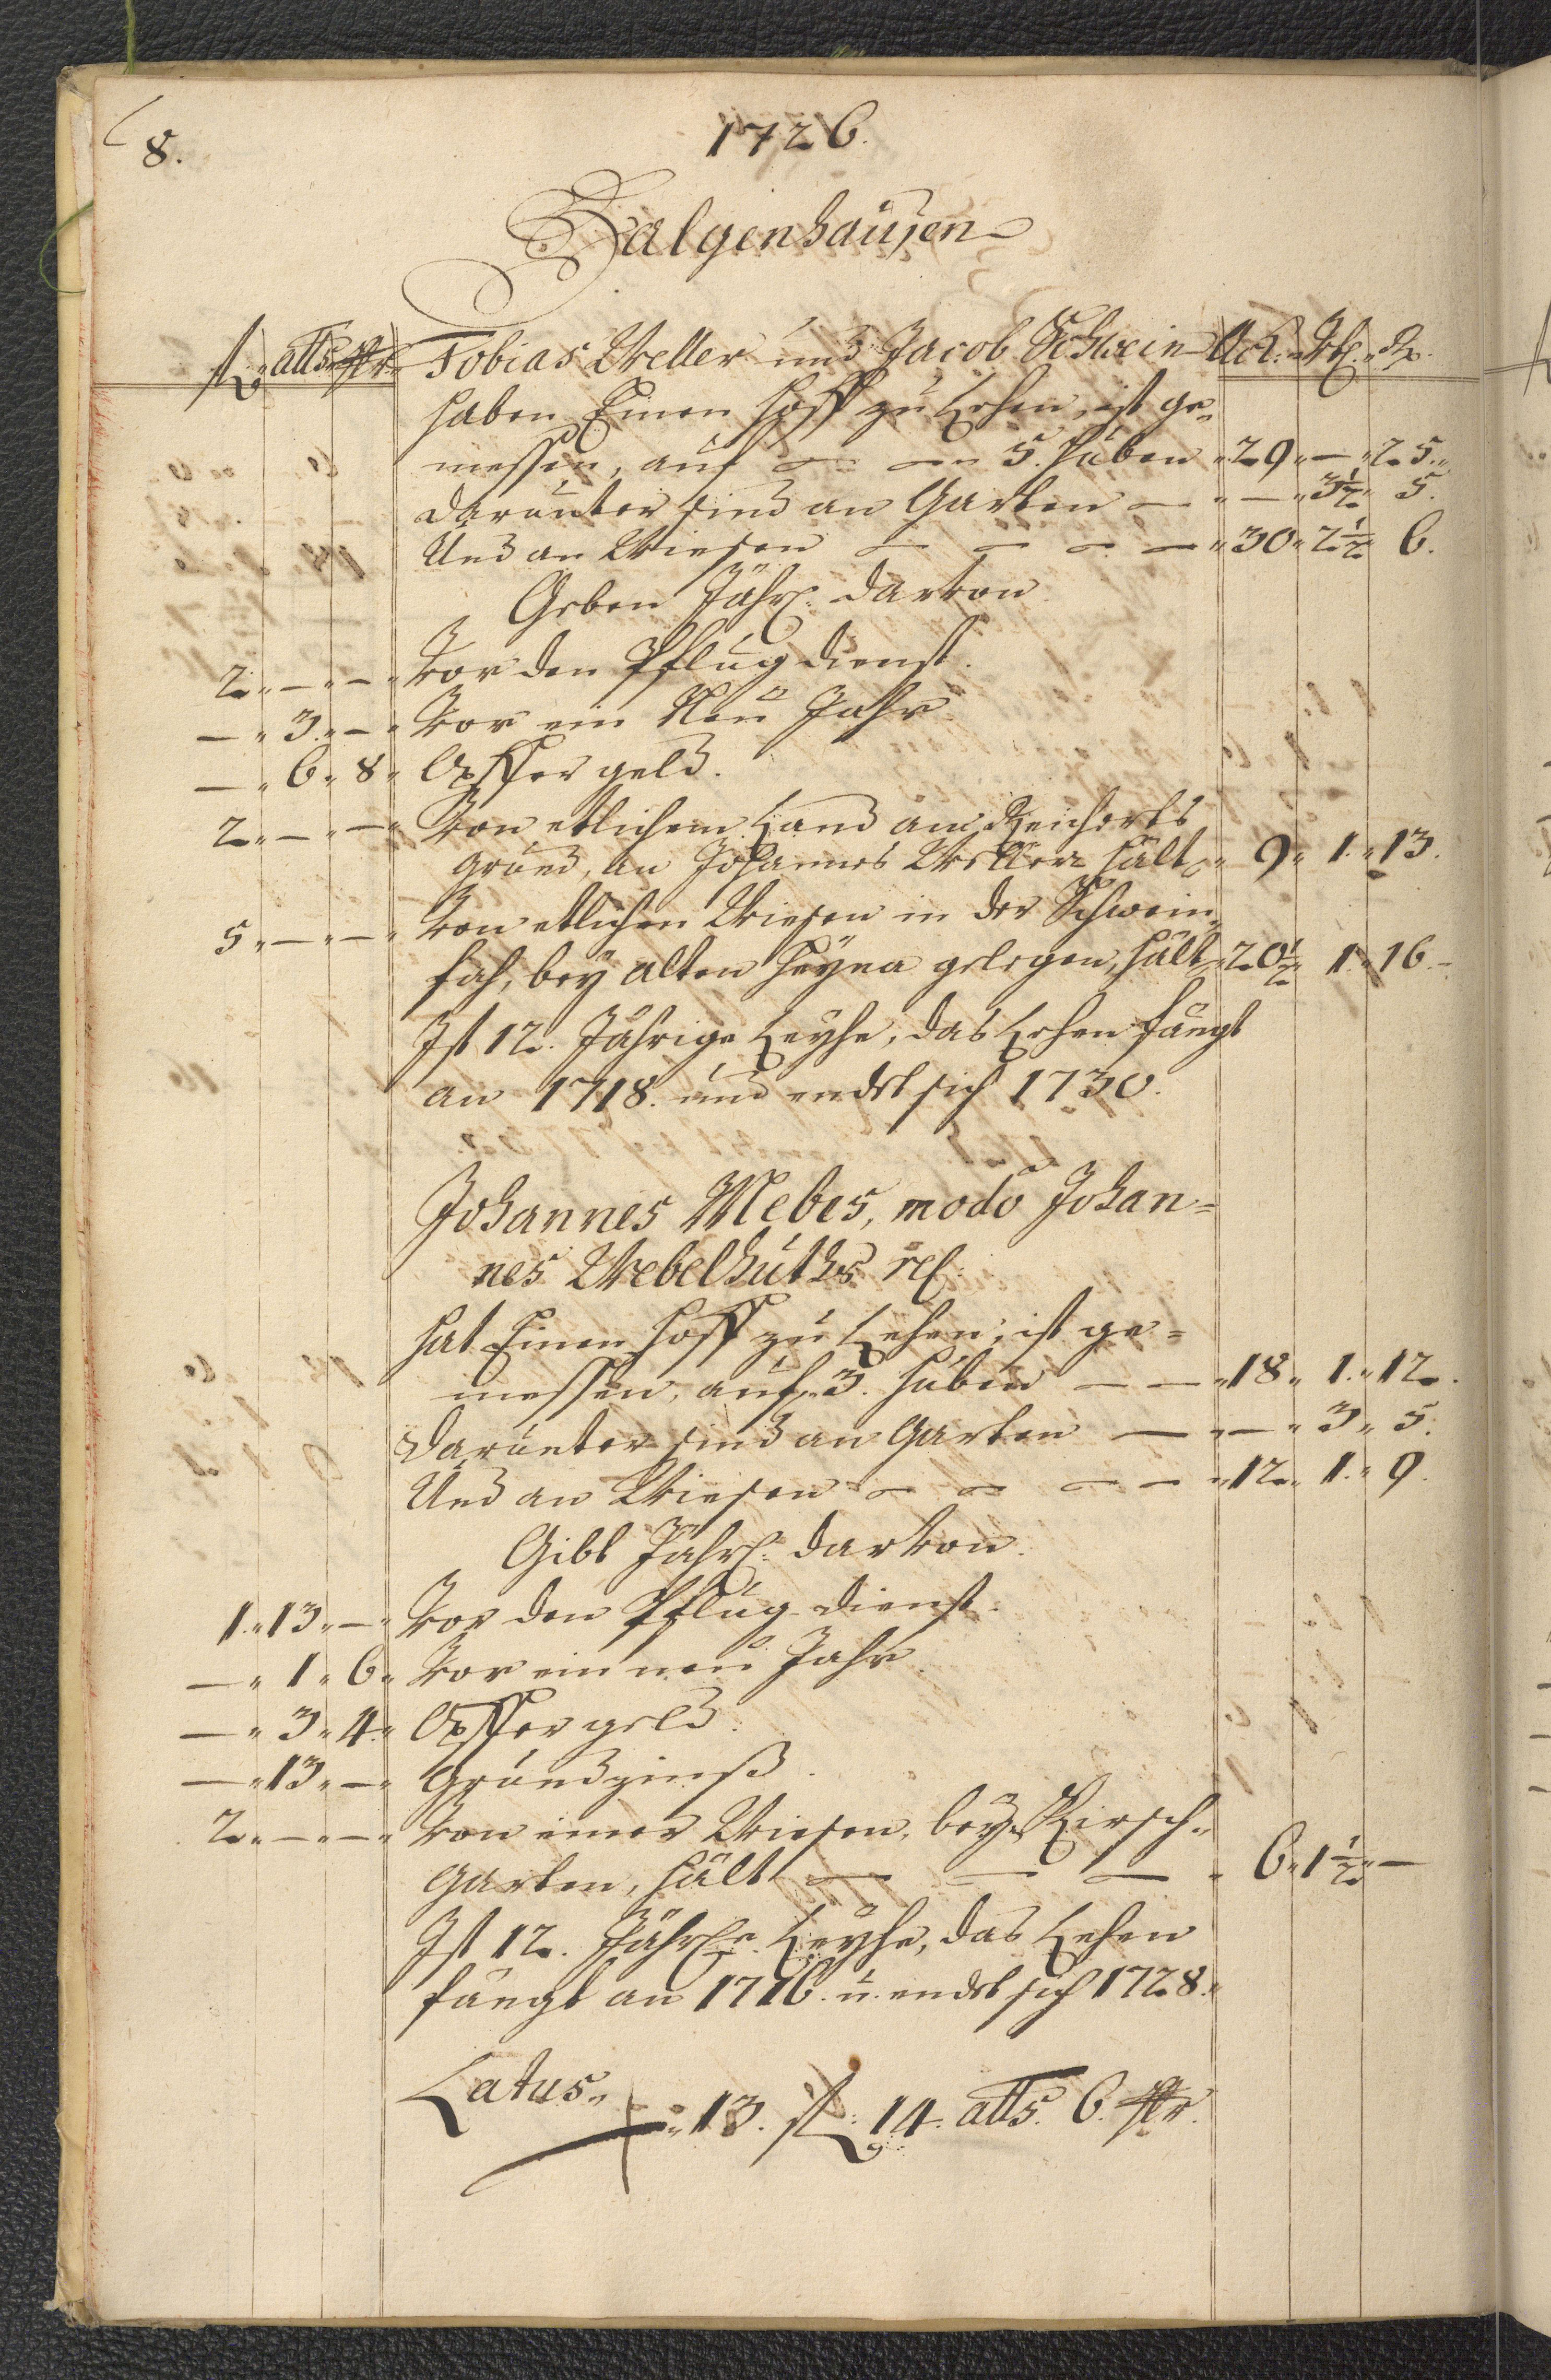 8.
1726.
Dalgenhausen
fl. alls. hlr. Tobias Weller und Jacob Schwein Ack. Vtl. Rt.
haben Einen Hoff zu Lehen, ist ge-
messen, auf — — 5. Huben 29 — 25.
darunter sind an Garten — — 3½ 5.
Und an Wiesen — — — — 30 2½ 6.
Geben Jährl. darvon
2 — — Vor den Pflug dienst.
— 3 — Vor ein Neu Jahr
— 6 8 Opffer geld.
2 — — Von etlichem Land am Reicherts
grund, an Johannes Wellern hält 9 1. 13.
5 — — Von etlichen Wiesen in der Schwein-
bey alten Heyna gelegen, hält 20½ 1. 16.
Ist 12. Jährige Leyhe, das Lehen fängt
an 1718. und endet sich 1730.
Johannes Mebes, modo Johan=
nes Webelhuths rel.
hat Einen Hoff zu Lehen, ist ge=
messen, auf 3. Huben — — 18 1. 12.
Darunter sind an Garten — — 3 5.
Und an Wiesen — — — — 12 1. 9.
Gibt Jährl. darvon.
1. 13 — Vor den Pflug dienst.
— 1 6 Vor ein neu Jahr
— 3 4 Opffer geld.
— 13 — Grundzinß.
2 — — Von einer Wiesen, bey Kirsch-
Garten, hält — — — 6 1½ —
Ist 12. Jährl. Leyhe, das Lehen
fängt an 1716. u. endet sich 1728.
Latus. 13. fl. 14. alls. 6. hlr.